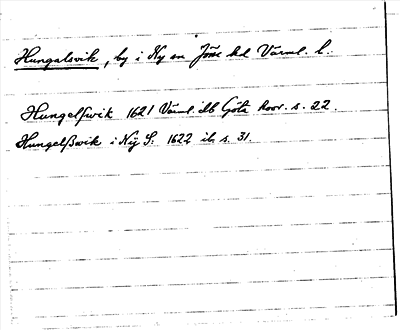 Hungalsvik, by i Ny sn Jösse hd Värml. l.
Hungelswik 1621 Värml. db Göta hovr. s. 22.
Hungelßwik i Nÿ S: 1622 ib. s. 31.